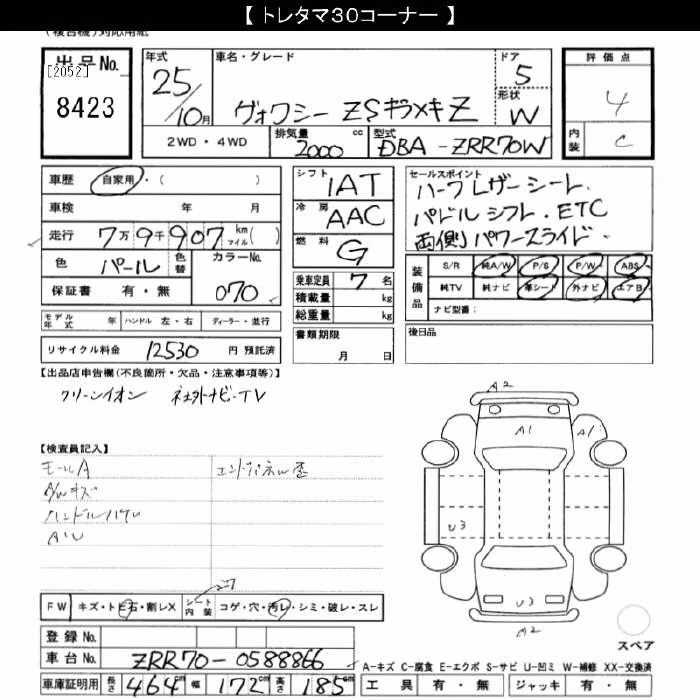 【 トレタマ30コーナー 】
(複合機)対応用紙
出品No.
[2052]
8423
年式
25/10月
車名・グレード
ヴォクシー ZSキラメキZ
ドア
5
形状
W
評価点
4
内装
C
2WD・4WD
排気量 2000 cc
型式 DBA-ZRR70W
車歴 自家用・( )
車検 年 月
走行 7万9千907 km マイル( )
色 パール 色替
カラーNo. 070
保証書 有・無
モデル年式 年 ハンドル 左・右 ディーラー・並行
リサイクル料金 12530 円 預託済
シフト IAT
冷房 AAC
燃料 G
乗車定員 7 名
積載量 kg
総重量 kg
書類期限
月 日
セールスポイント
ハーフレザーシート.
パドルシフト.ETC
両側パワースライド.
装備品
S/R 純A/W P/S P/W ABS
純TV 純ナビ 革シート 外ナビ エアB
ナビ型番:
後日品
【出品店申告欄(不良箇所・欠品・注意事項等)】
クリーンイオン 社外ナビ・TV
【検査員記入】
モールA
A/Wキズ
ハンドルハゲ
エンドパネル歪
A2
A1
A1
U3
U3
A2
スペア
FW キズ・トビ石・割レX シート内装 コゲ・穴・汚レ・シミ・破レ・スレ
登録No.
車台No. ZRR70-0588866
車庫証明用 長さ 464cm 幅 172cm 高さ 185cm
A-キズ C-腐食 E-エクボ S-サビ U-凹ミ W-補修 XX-交換済
工具 有・無 ジャッキ 有・無